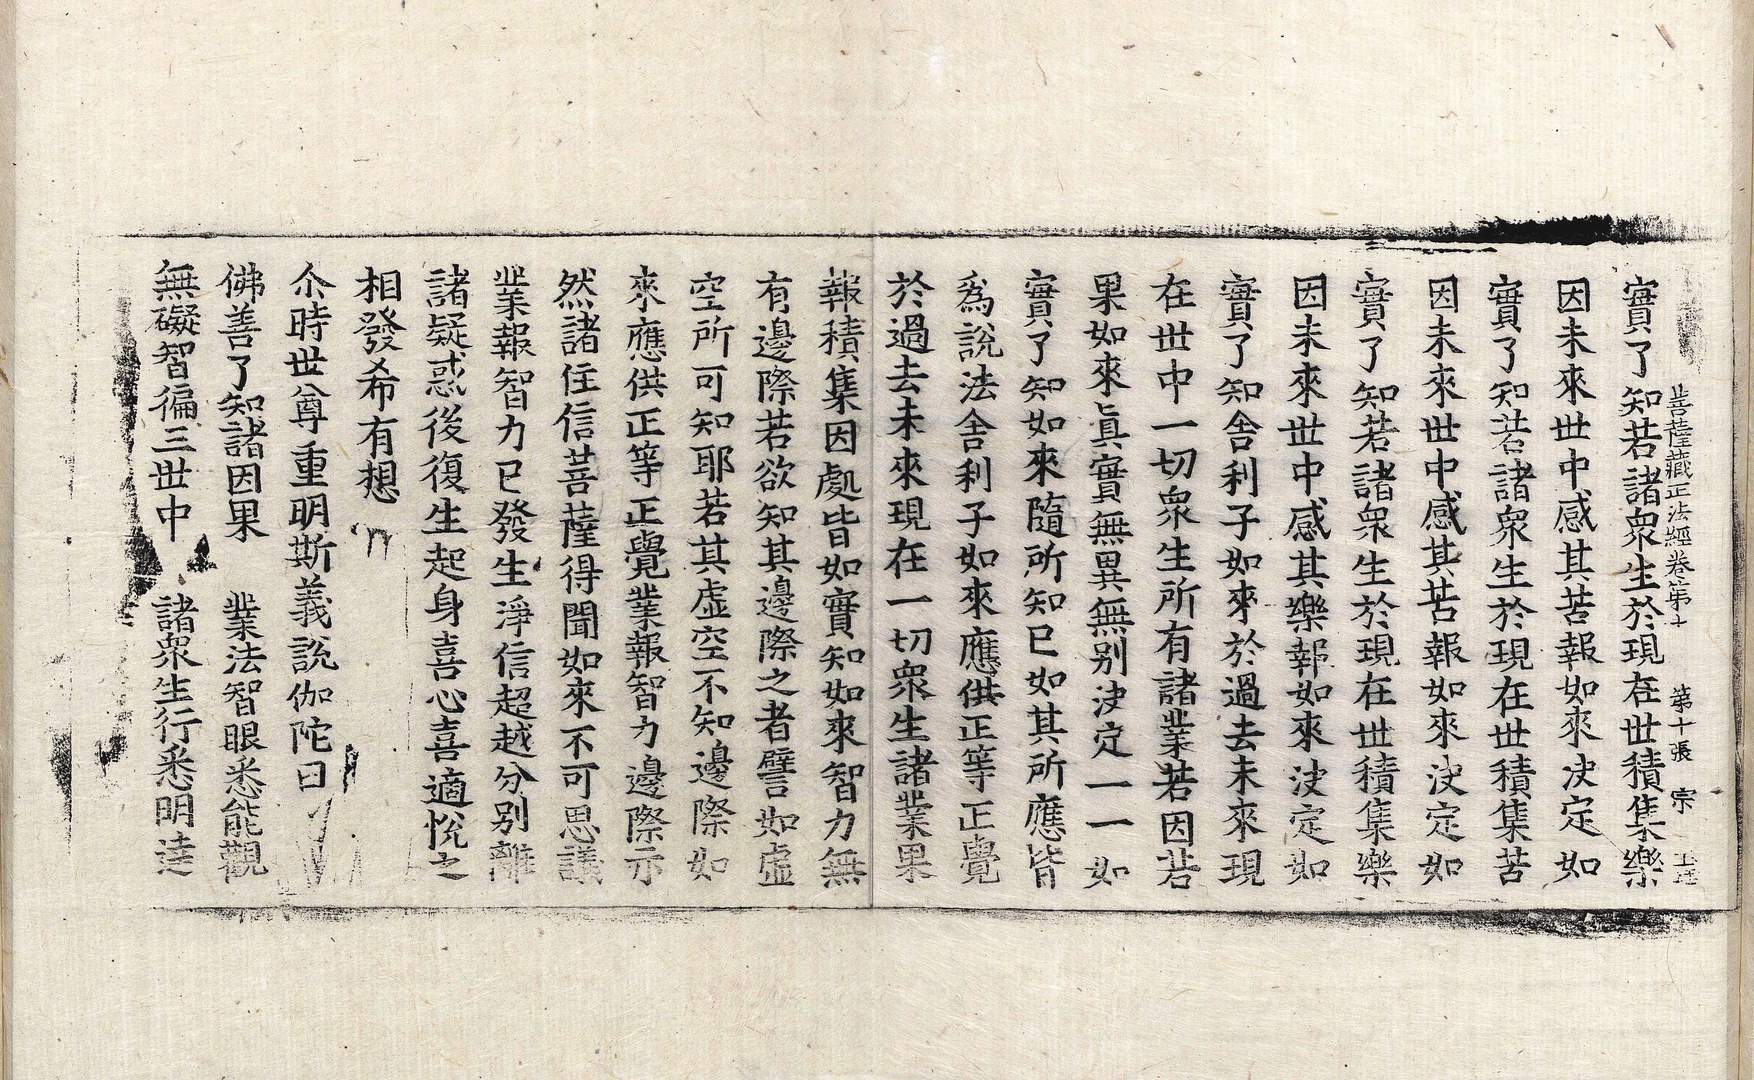 菩薩藏正法經卷第十 第十張 宗
實了知若諸衆生於現在世積集樂
因未來世中感其苦報如來決定如
實了知若諸衆生於現在世積集苦
因未來世中感其苦報如來決定如
實了知若諸衆生於現在世積集樂
因未來世中感其樂報如來決定如
實了知舍利子如來於過去未來現
在世中一切衆生所有諸業若因若
果如來眞實無異無别決定一一如
實了知如來隨所知已如其所應皆
爲說法舍利子如來應供正等正覺
於過去未來現在一切衆生諸業果
報積集因處皆如實知如來智力無
有邊際若欲知其邊際之者譬如虛
空所可知耶若其虛空不知邊際如
來應供正等正覺業報智力邊際亦
然諸住信菩薩得聞如來不可思議
業報智力已發生淨信超越分别離
諸疑惑後復生起身喜心喜適悅之
相發希有想
尒時世尊重明斯義說伽陀曰
佛善了知諸因果 業法智眼悉能觀
無礙智徧三世中 諸衆生行悉明達